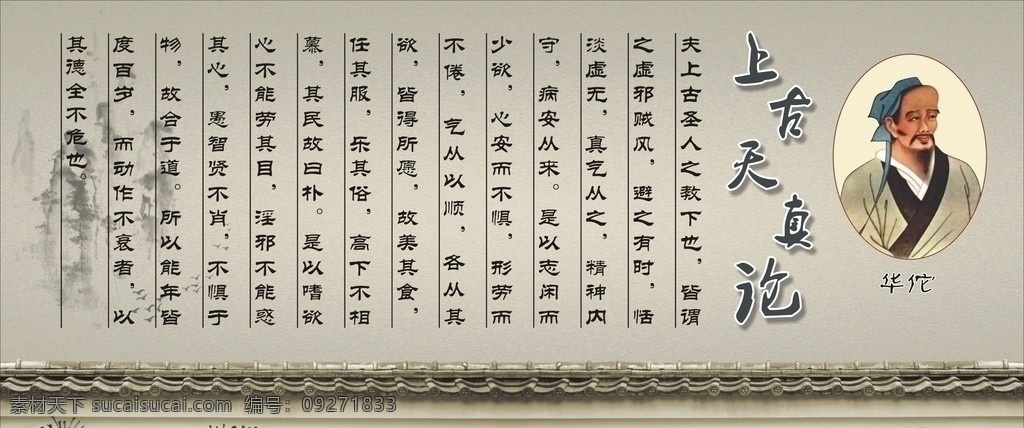 华佗
上古天真论
夫上古圣人之教下也，皆谓
之虚邪贼风，避之有时，恬
淡虚无，真气从之，精神内
守，病安从来。是以志闲而
少欲，心安而不惧，形劳而
不倦，气从以顺，各从其
欲，皆得所愿，故美其食，
任其服，乐其俗，高下不相
慕，其民故曰朴。是以嗜欲
心不能劳其目，淫邪不能惑
其心，愚智贤不肖，不惧于
物，故合于道。所以能年皆
度百岁，而动作不衰者，以
其德全不危也。
素材天下 sucaisucai.com 编号：09271833